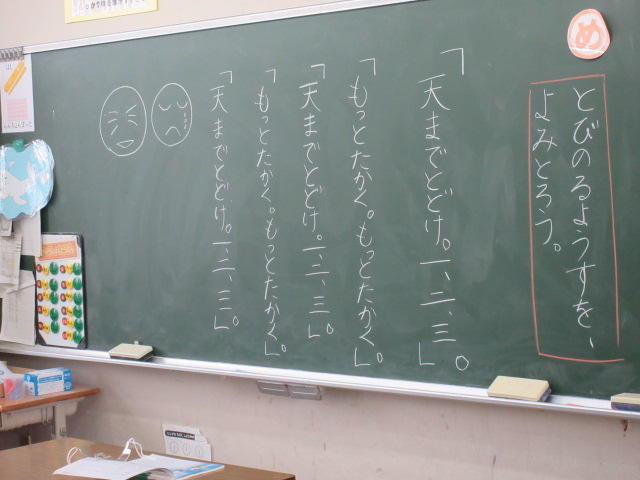 め
とびのるようすを、
よみとろう。
「天までとどけ。一、二、三」。
「もっとたかく。もっとたかく」。
「天までとどけ。一、二、三」。
「もっとたかく。もっとたかく」。
「天までとどけ。一、二、三」。